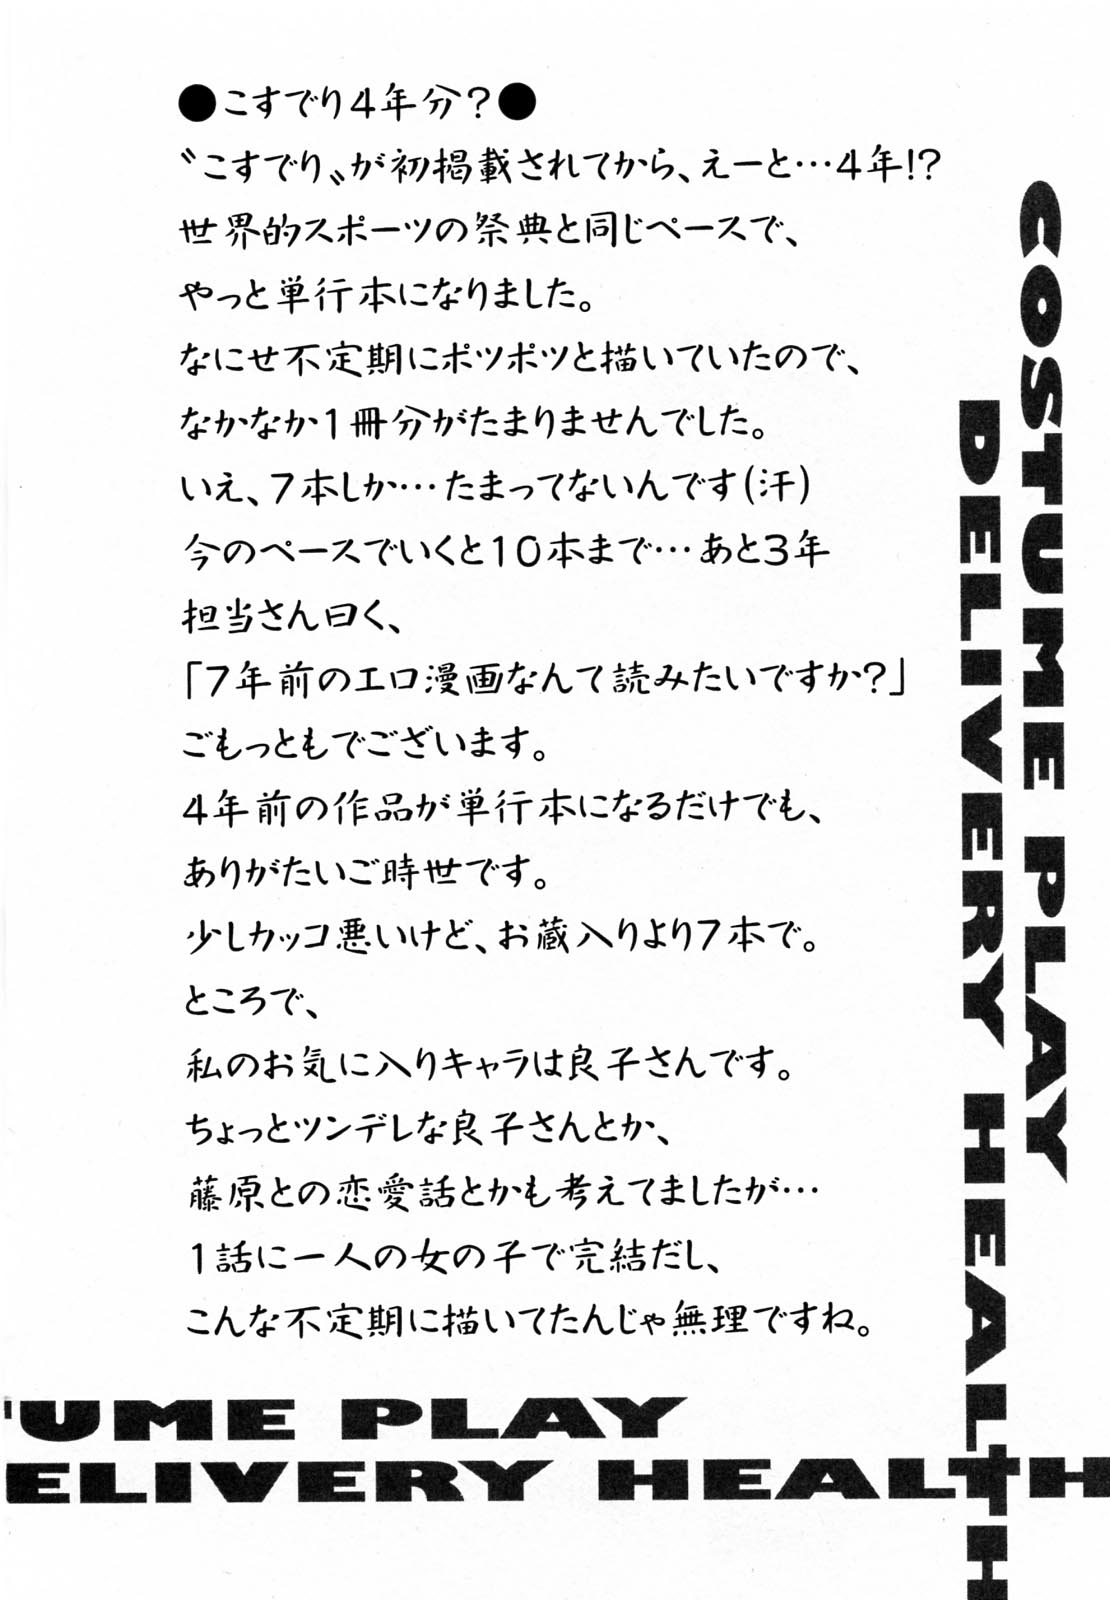 ●こすでり4年分?●
〝こすでり〟が初掲載されてから、えーと…4年!?
世界的スポーツの祭典と同じペースで、
やっと単行本になりました。
なにせ不定期にポツポツと描いていたので、
なかなか1冊分がたまりませんでした。
いえ、7本しか…たまってないんです(汗)
今のペースでいくと10本まで…あと3年
担当さん曰く、
「7年前のエロ漫画なんて読みたいですか?」
ごもっともでございます。
4年前の作品が単行本になるだけでも、
ありがたいご時世です。
少しカッコ悪いけど、お蔵入りより7本で。
ところで、
私のお気に入りキャラは良子さんです。
ちょっとツンデレな良子さんとか、
藤原との恋愛話とかも考えてましたが…
1話に一人の女の子で完結だし、
こんな不定期に描いてたんじゃ無理ですね。
COSTUME PLAY
DELIVERY HEALTH
UME PLAY
ELIVERY HEALTH